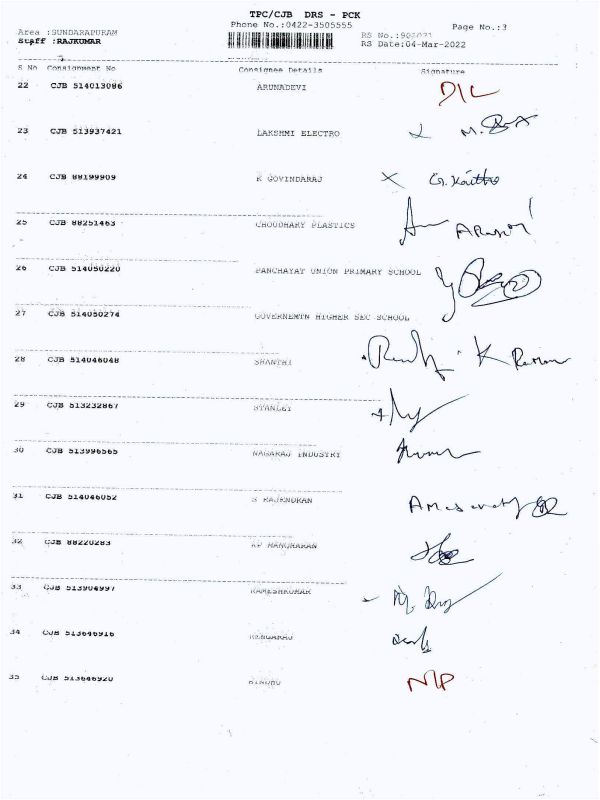 TPC/CJB DRS - PCK
Phone No.:0422-3505555 Page No.:3
Area :SUNDARAPURAM RS No.:
Staff :RAJKUMAR RS Date:04-Mar-2022
S No Consignment No Consignee Details Signature
22 CJB 514013086 ARUNADEVI D/L
23 CJB 513937421 LAKSHMI ELECTRO
24 CJB 88199909 K GOVINDARAJ
25 CJB 88251463 CHOUDHARY PLASTICS
26 CJB 514050220 PANCHAYAT UNION PRIMARY SCHOOL
27 CJB 514050274 GOVERNEMTN HIGHER SEC SCHOOL
28 CJB 514046048 SHANTHI
29 CJB 513232867 STANLEY
30 CJB 513996565 NAGARAJ INDUSTRY
31 CJB 514046052 S RAJENDRAN
32 CJB 88220283 KP MANOHARAN
33 CJB 513904997 RAMESHKUMAR
34 CJB 513646916 RENGARAJ
35 CJB 513646920 N/P